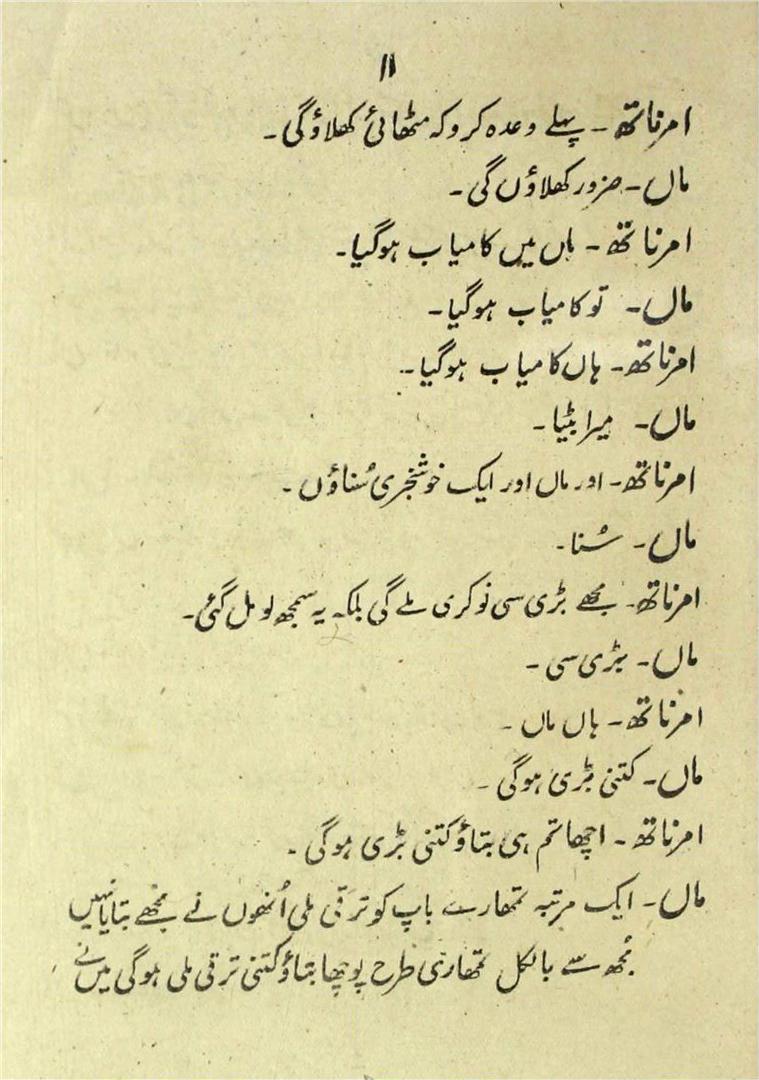 ۱۱
امرناتھ ۔ پہلے وعدہ کرو کہ مٹھائی کھلاؤگی ۔
ماں ۔ ضرور کھلاؤں گی ۔
امرناتھ ۔ ہاں میں کامیاب ہوگیا ۔
ماں ۔ تو کامیاب ہوگیا ۔
امرناتھ ۔ ہاں کامیاب ہوگیا ۔
ماں ۔ میرا بیٹا ۔
امرناتھ ۔ اور ماں اور ایک خوشخبری سُناؤں ۔
ماں ۔ سُنا ۔
امرناتھ ۔ مجھے بڑی سی نوکری ملے گی بلکہ یہ سمجھ لو مل گئی ۔
ماں ۔ بڑی سی ۔
امرناتھ ۔ ہاں ماں ۔
ماں ۔ کتنی بڑی ہوگی ۔
امرناتھ ۔ اچھا تم ہی بتاؤ کتنی بڑی ہوگی ۔
ماں ۔ ایک مرتبہ تمھارے باپ کو ترقی ملی اُنھوں نے مجھے بتایا نہیں
مُجھ سے بالکل تمھاری طرح پوچھا بتاؤ کتنی ترقی ملی ہوگی میں نے